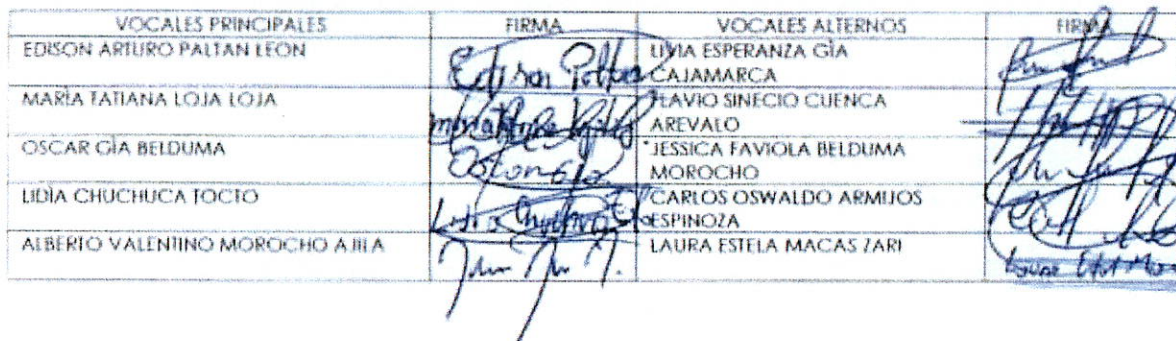 VOCALES PRINCIPALES FIRMA VOCALES ALTERNOS FIRMA
EDISON ARTURO PALTAN LEON Edison Paltan LIVIA ESPERANZA GÌA
CAJAMARCA
MARÌA TATIANA LOJA LOJA FLAVIO SINECIO CUENCA
AREVALO
OSCAR GÌA BELDUMA JESSICA FAVIOLA BELDUMA
MOROCHO
LIDÌA CHUCHUCA TOCTO CARLOS OSWALDO ARMIJOS
ESPINOZA
ALBERTO VALENTINO MOROCHO AJILA LAURA ESTELA MACAS ZARI